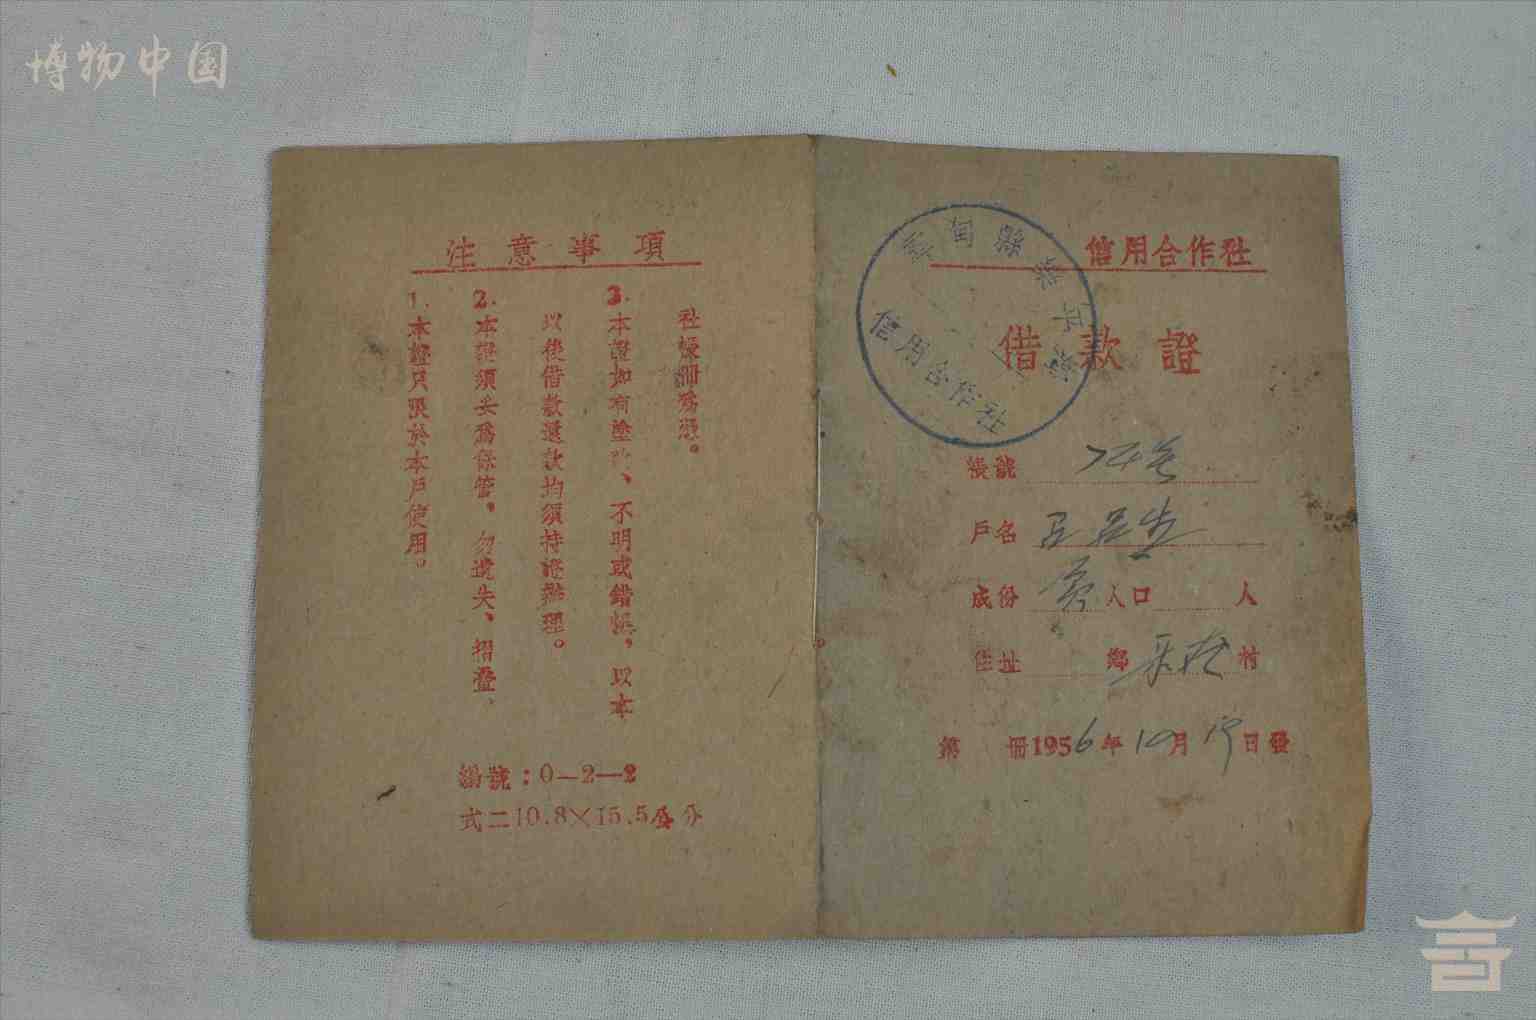 博物中国
注意事項
1.本證只限於本戶使用。
2.本證須妥為保管，勿遺失、摺疊、
以後借款還款均須持證辦理。
3.本證如有塗改、不明或錯悞，以本
社賬冊為憑。
編號：0—2—2
式二10.8×15.5公分
信用合作社
縣 平
信用合作社
借款證
賬號
戶名
成份 人口 人
住址 鄉 村
第 冊1956年10月19日發